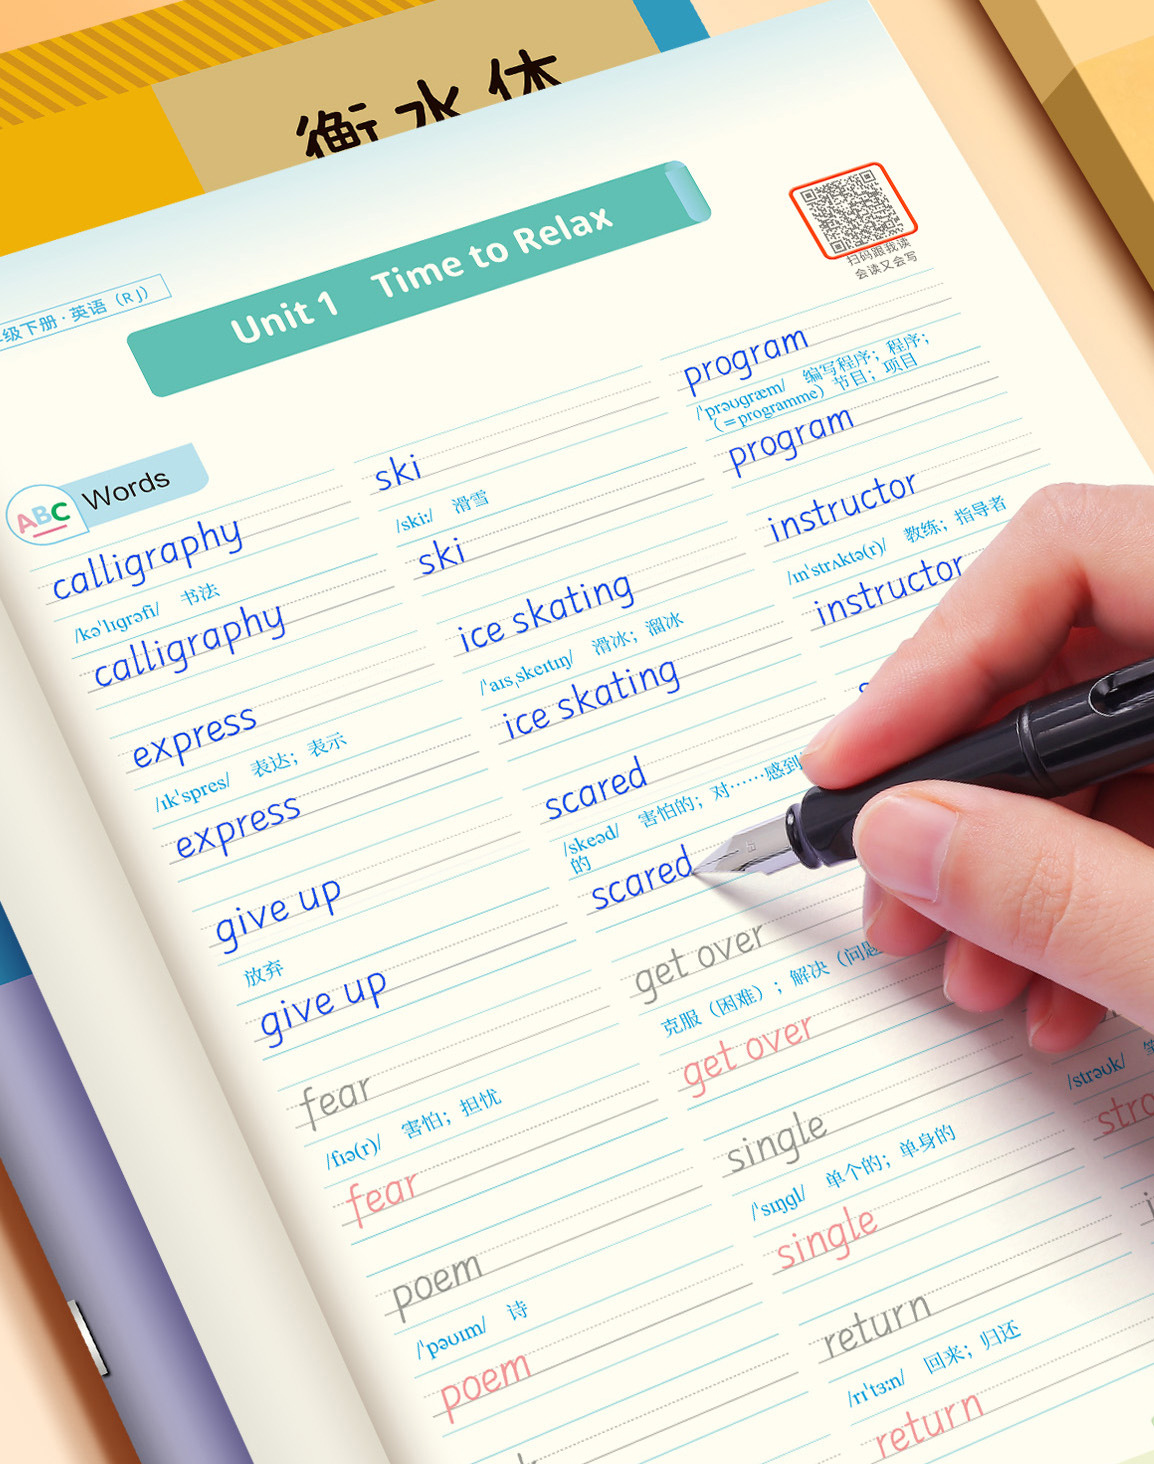 衡水体
级下册·英语（RJ）
Unit 1 Time to Relax
扫码跟我读
会读又会写
ABC Words
calligraphy
/kəˈlɪɡrəfi/ 书法
calligraphy
express
/ɪkˈspres/ 表达；表示
express
give up
放弃
give up
fear
/fɪə(r)/ 害怕；担忧
fear
poem
/ˈpəʊɪm/ 诗
poem
ski
/skiː/ 滑雪
ski
ice skating
/ˈaɪsˌskeɪtɪŋ/ 滑冰；溜冰
ice skating
scared
/skeəd/ 害怕的；对……感到
的
scared
get over
克服（困难）；解决（问题
get over
single
/ˈsɪŋɡl/ 单个的；单身的
single
return
/rɪˈtɜːn/ 回来；归还
return
program
/ˈprəʊɡræm/ 编写程序；程序；
（=programme）节目；项目
program
instructor
/ɪnˈstrʌktə(r)/ 教练；指导者
instructor
/strəʊk/